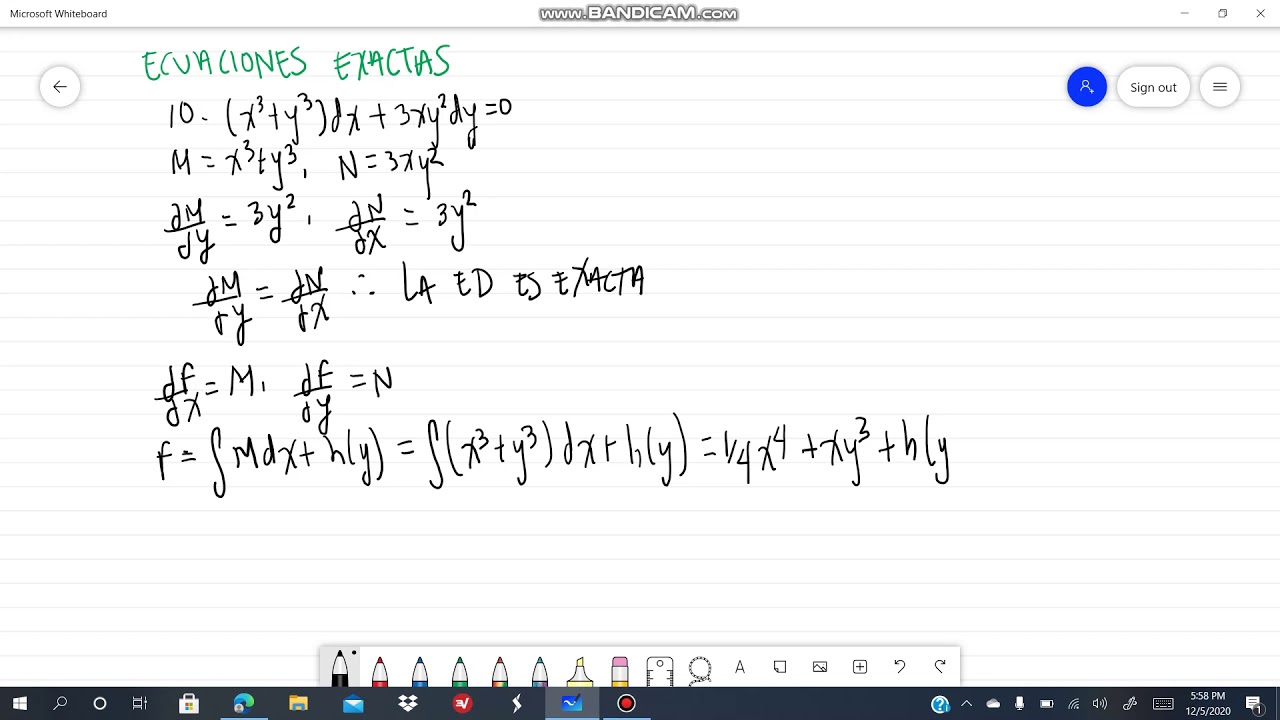 Microsoft Whiteboard
www.BANDICAM.com
ECUACIONES EXACTAS
Sign out
10. (x³+y³)dx+3xy²dy=0
M=x³+y³, N=3xy²
∂M/∂y = 3y², ∂N/∂x = 3y²
∂M/∂y = ∂N/∂x ∴ LA ED ES EXACTA
∂f/∂x = M, ∂f/∂y = N
f = ∫Mdx+h(y) = ∫(x³+y³)dx+h(y) = 1/4x⁴+xy³+h(y
A
5:58 PM
12/5/2020